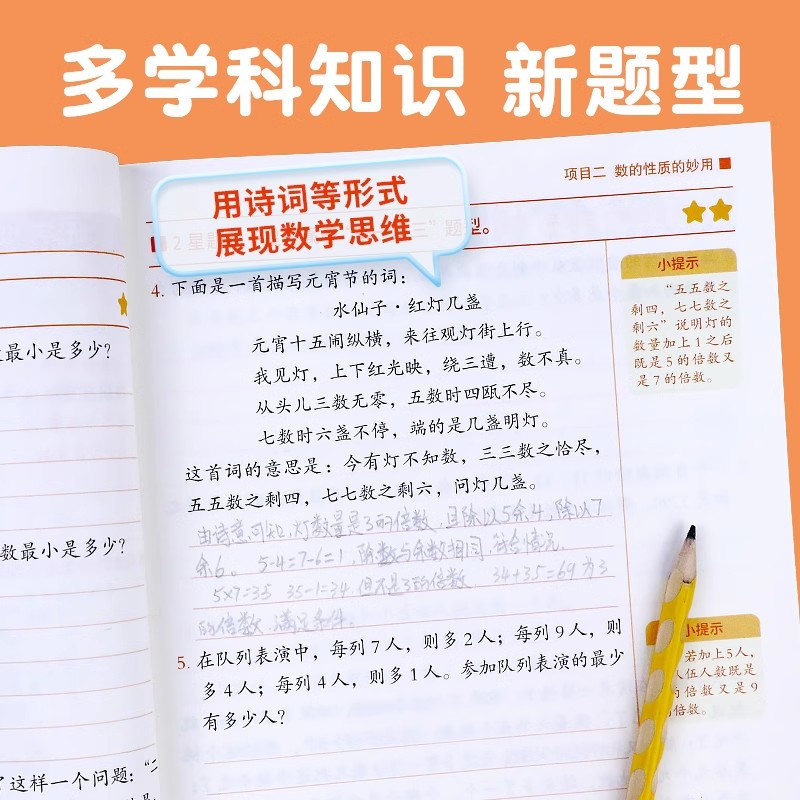 多学科知识 新题型
用诗词等形式
展现数学思维
项目二 数的性质的妙用
2星题
三”题型。
最小是多少?
数最小是多少?
这样一个问题:“
4. 下面是一首描写元宵节的词:
水仙子·红灯几盏
元宵十五闹纵横,来往观灯街上行。
我见灯,上下红光映,绕三遭,数不真。
从头儿三数无零,五数时四瓯不尽。
七数时六盏不停,端的是几盏明灯。
这首词的意思是:今有灯不知数,三三数之恰尽,
五五数之剩四,七七数之剩六,问灯几盏。
由诗意可知,灯数量是3的倍数,且除以5余4,除以7
余6。 5-4=7-6=1,除数与余数相同,符合情况.
5×7=35 35-1=34,但不是3的倍数 34+35=69为3
的倍数,满足条件.
5. 在队列表演中,每列7人,则多2人;每列9人,则
多4人;每列4人,则多1人。参加队列表演的最少
有多少人?
小提示
“五五数之
剩四,七七数之
剩六”说明灯的
数量加上1之后
既是5的倍数又
是7的倍数。
小提示
若加上5人,
人伍人数既是
的倍数又是9
倍数。